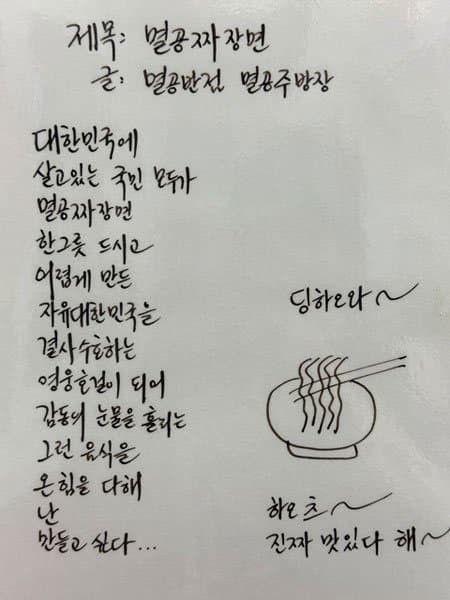 제목: 멸공짜장면
글: 멸공반점 멸공주방장
대한민국에
살고있는 국민 모두가
멸공짜장면
한그릇 드시고
어렵게 만든
자유대한민국을
결사수호하는
영웅호걸이 되어
감동의 눈물을 흘리는
그런 음식을
온힘을 다해
난
만들고 싶다...
딩하오와~
하오츠~
진짜 맛있다 해~